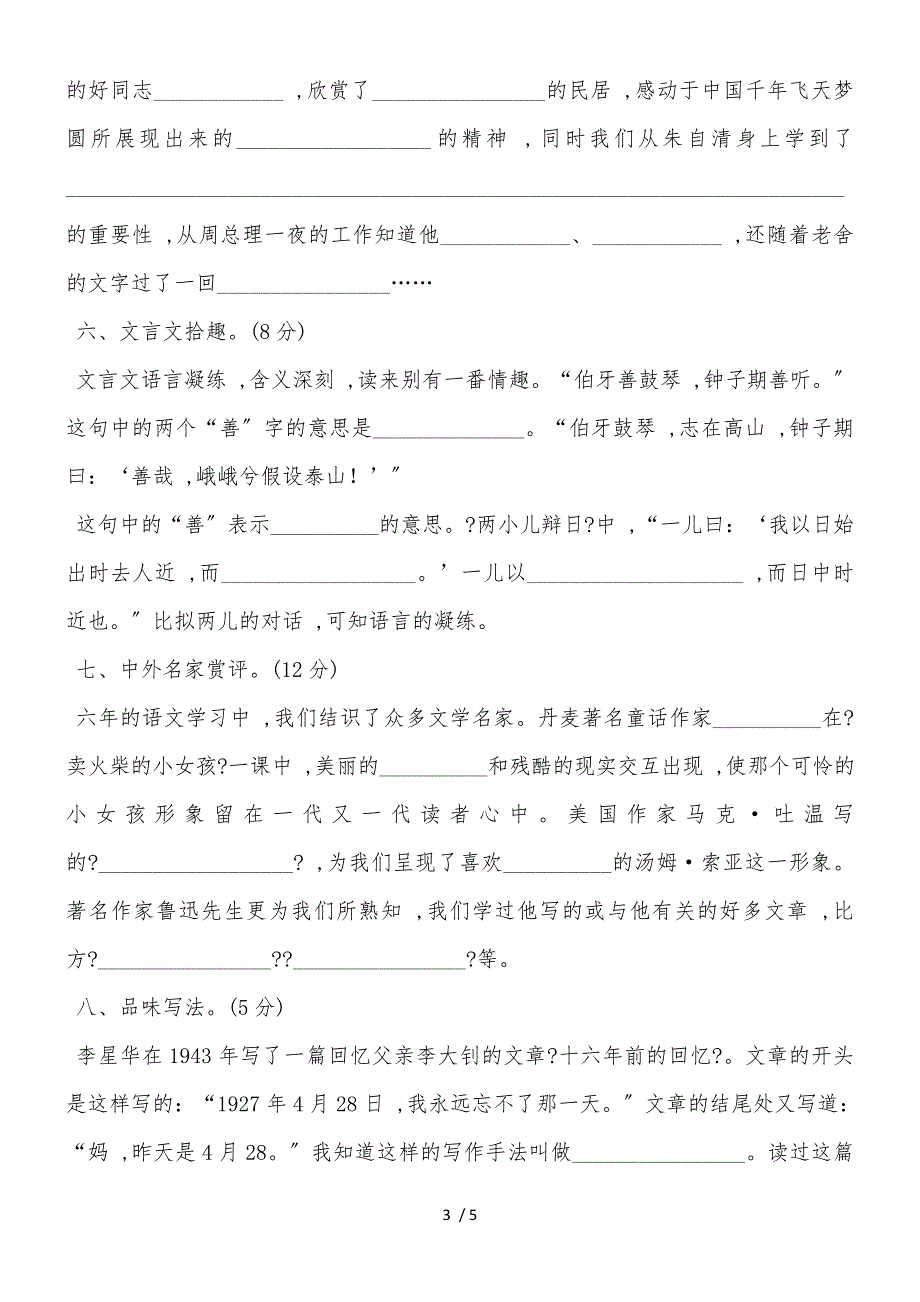 的好同志____________ ,欣赏了________________的民居 ,感动于中国千年飞天梦
圆所展现出来的__________________的精神 ,同时我们从朱自清身上学到了
________________________________________________________________________
的重要性 ,从周总理一夜的工作知道他____________、____________ ,还随着老舍
的文字过了一回________________……
六、文言文拾趣。(8分)
文言文语言凝练 ,含义深刻 ,读来别有一番情趣。“伯牙善鼓琴 ,钟子期善听。〞
这句中的两个“善〞字的意思是______________。“伯牙鼓琴 ,志在高山 ,钟子期
曰：‘善哉 ,峨峨兮假设泰山！’〞
这句中的“善〞表示__________的意思。?两小儿辩日?中 ,“一儿曰：‘我以日始
出时去人近 ,而__________________。’一儿以____________________ ,而日中时
近也。〞比拟两儿的对话 ,可知语言的凝练。
七、中外名家赏评。(12分)
六年的语文学习中 ,我们结识了众多文学名家。丹麦著名童话作家__________在?
卖火柴的小女孩?一课中 ,美丽的__________和残酷的现实交互出现 ,使那个可怜的
小女孩形象留在一代又一代读者心中。美国作家马克·吐温写
的?__________________? ,为我们呈现了喜欢__________的汤姆·索亚这一形象。
著名作家鲁迅先生更为我们所熟知 ,我们学过他写的或与他有关的好多文章 ,比
方?________________??________________?等。
八、品味写法。(5分)
李星华在1943年写了一篇回忆父亲李大钊的文章?十六年前的回忆?。文章的开头
是这样写的：“1927年4月28日 ,我永远忘不了那一天。〞文章的结尾处又写道：
“妈 ,昨天是4月28。〞我知道这样的写作手法叫做________________。读过这篇
3 / 5